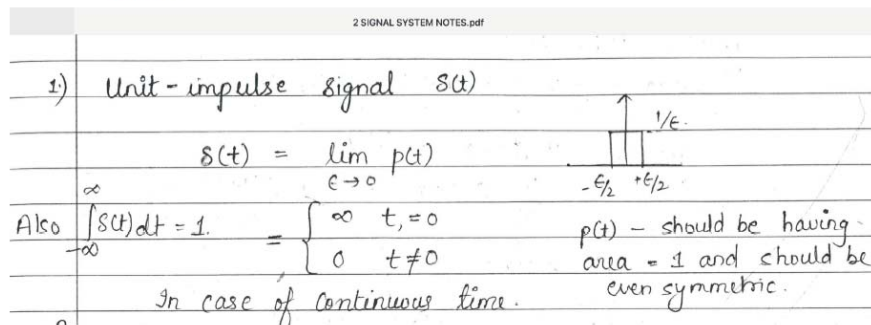 2 SIGNAL SYSTEM NOTES.pdf
1.) Unit-impulse signal δ(t)
1/ϵ.
δ(t) = lim p(t)
ϵ→0
-ϵ/2 +ϵ/2
Also ∫δ(t)dt = 1.
∞
-∞
= { ∞ t,=0
0 t≠0
p(t) - should be having
area = 1 and should be
even symmetric.
In case of continuous time.